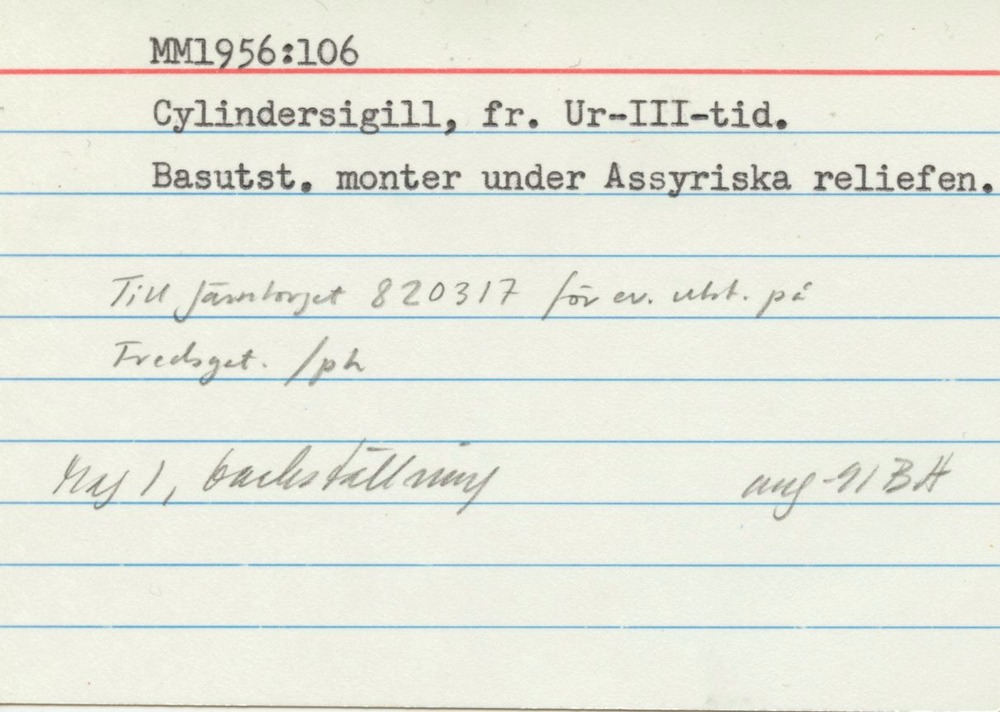 MM1956:106
Cylindersigill, fr. Ur-III-tid.
Basutst. monter under Assyriska reliefen.
Till Järntorget 820317 för ev. utst. på
Fredsgat. /ph
1, backställning aug -91 BH